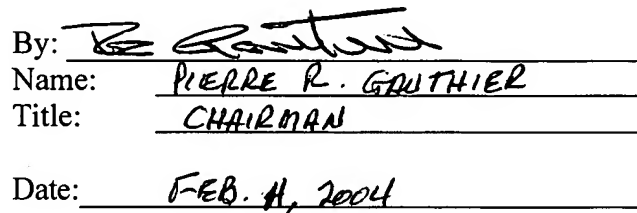 By:
Name: PIERRE R. GAUTHIER
Title: CHAIRMAN
Date: FEB. 11, 2004